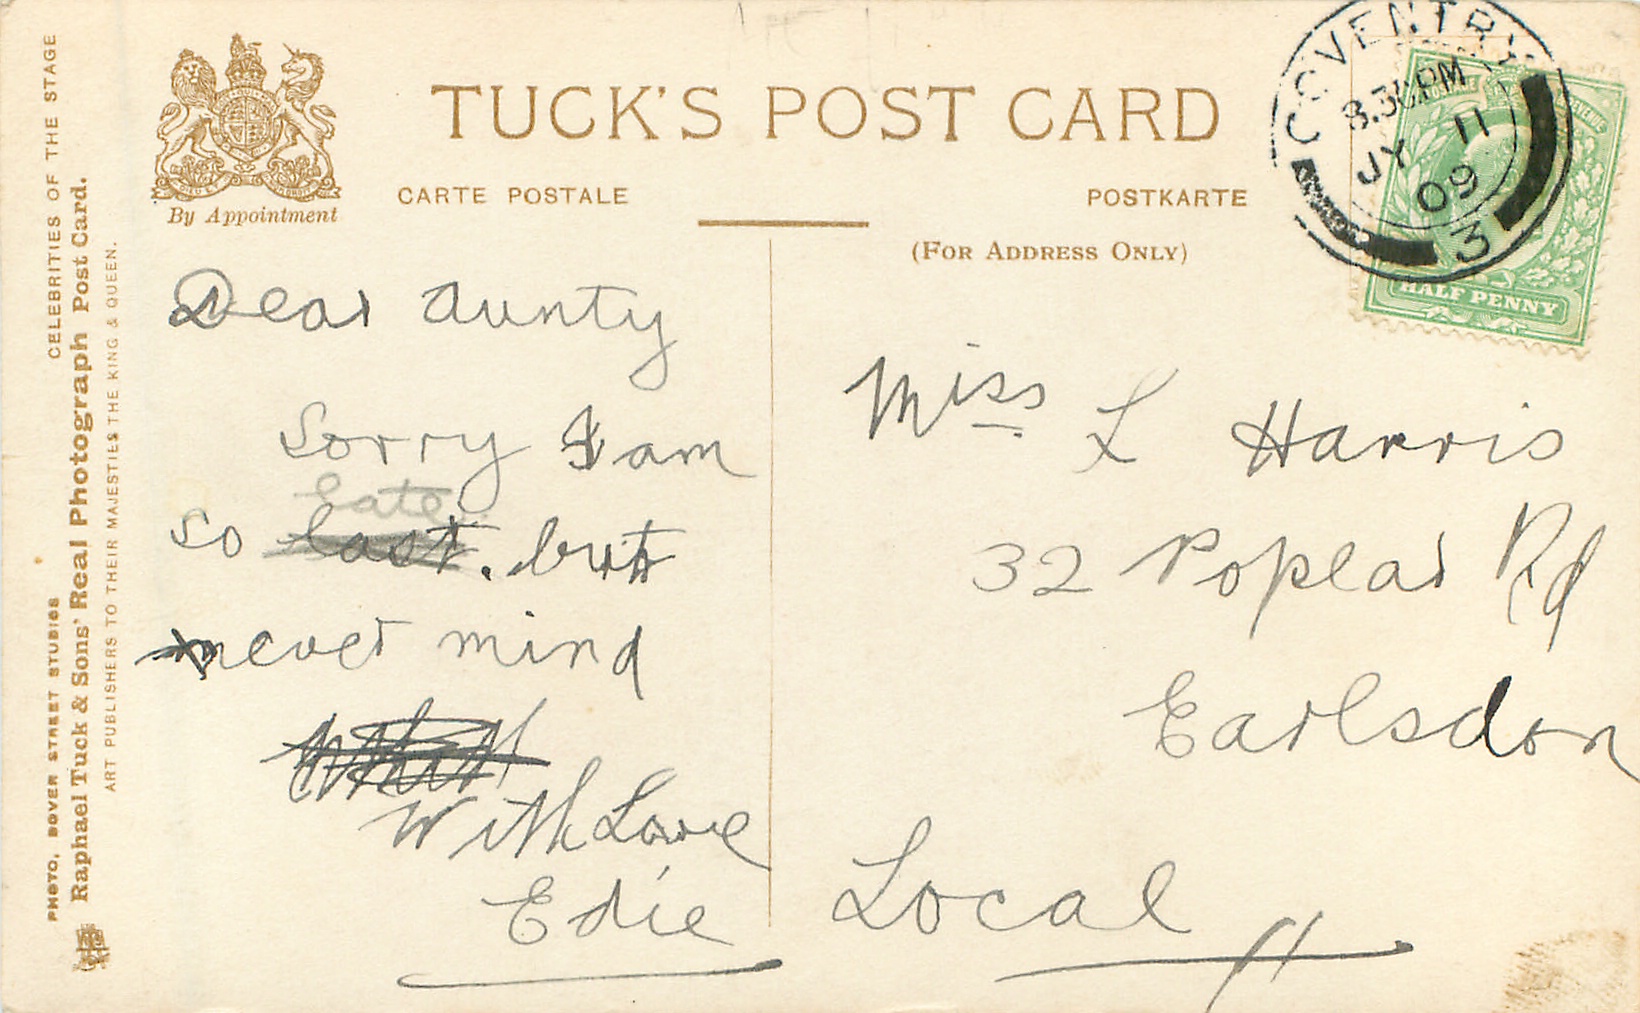 TUCK'S POST CARD
CARTE POSTALE
POSTKARTE
(FOR ADDRESS ONLY)
By Appointment
CELEBRITIES OF THE STAGE
PHOTO, DOVER STREET STUDIOS
Raphael Tuck & Sons' Real Photograph Post Card.
ART PUBLISHERS TO THEIR MAJESTIES THE KING & QUEEN.
COVENTRY
8.30PM
JY 11
09
3
HALF PENNY
Dear Aunty
Sorry I am
so late
last. but
never mind
With Love
Edie
Miss L Harris
32 Poplar Rd
Earlsdon
Local